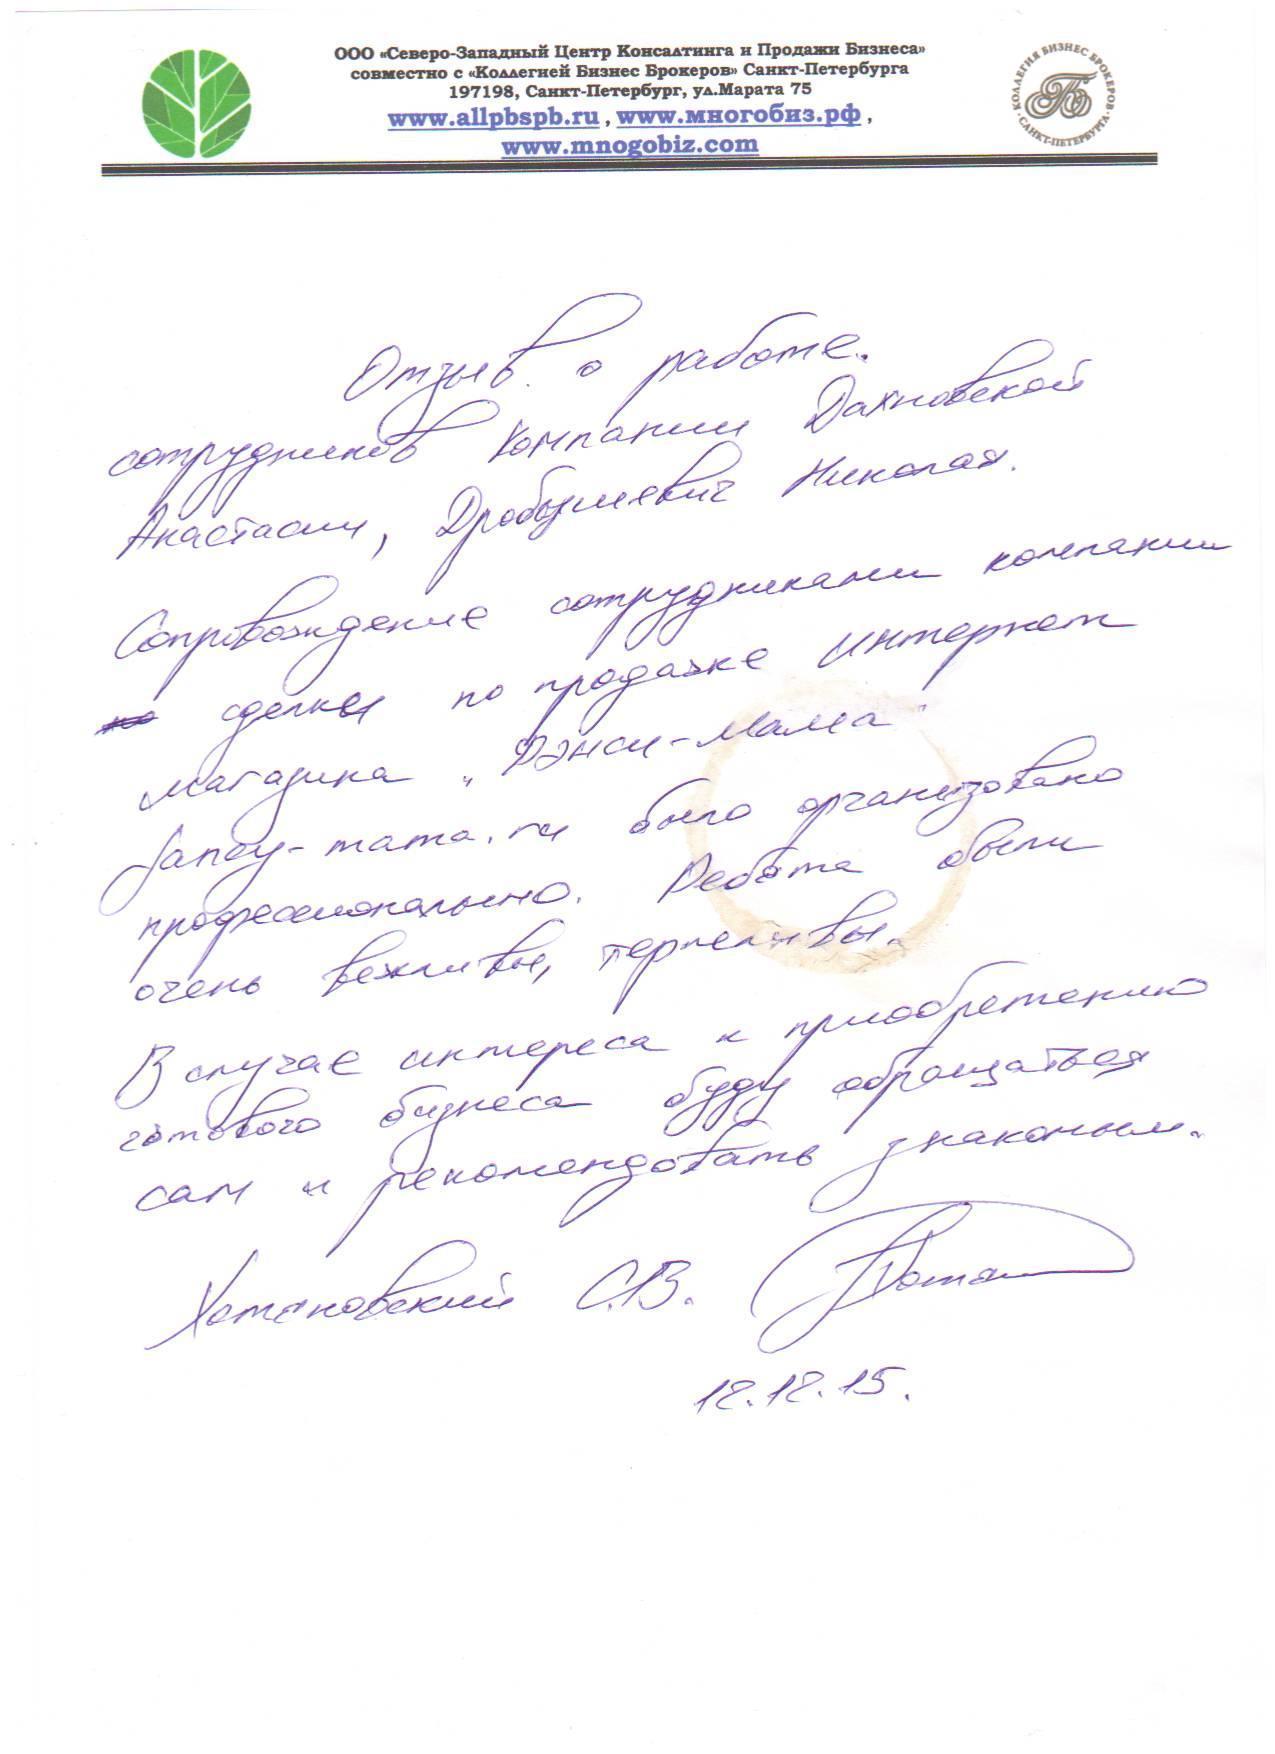 ООО «Северо-Западный Центр Консалтинга и Продажи Бизнеса»
совместно с «Коллегией Бизнес Брокеров» Санкт-Петербурга
197198, Санкт-Петербург, ул.Марата 75
www.allpbspb.ru , www.многобиз.рф ,
www.mnogobiz.com
КОЛЛЕГИЯ БИЗНЕС БРОКЕРОВ
САНКТ-ПЕТЕРБУРГА
Отзыв о работе.
сотрудников компании Дахновской
Анастасии, Дробушевич Николая.
Сопровождение сотрудниками компании
сделки по продаже интернет
магазина "Дэнси-Мама"
было организовано
профессионально. Ребята были
очень вежливы, терпеливы.
В случае интереса к приобретению
готового бизнеса буду обращаться
сам и рекомендовать знакомым.
С.В.
12.12.15.